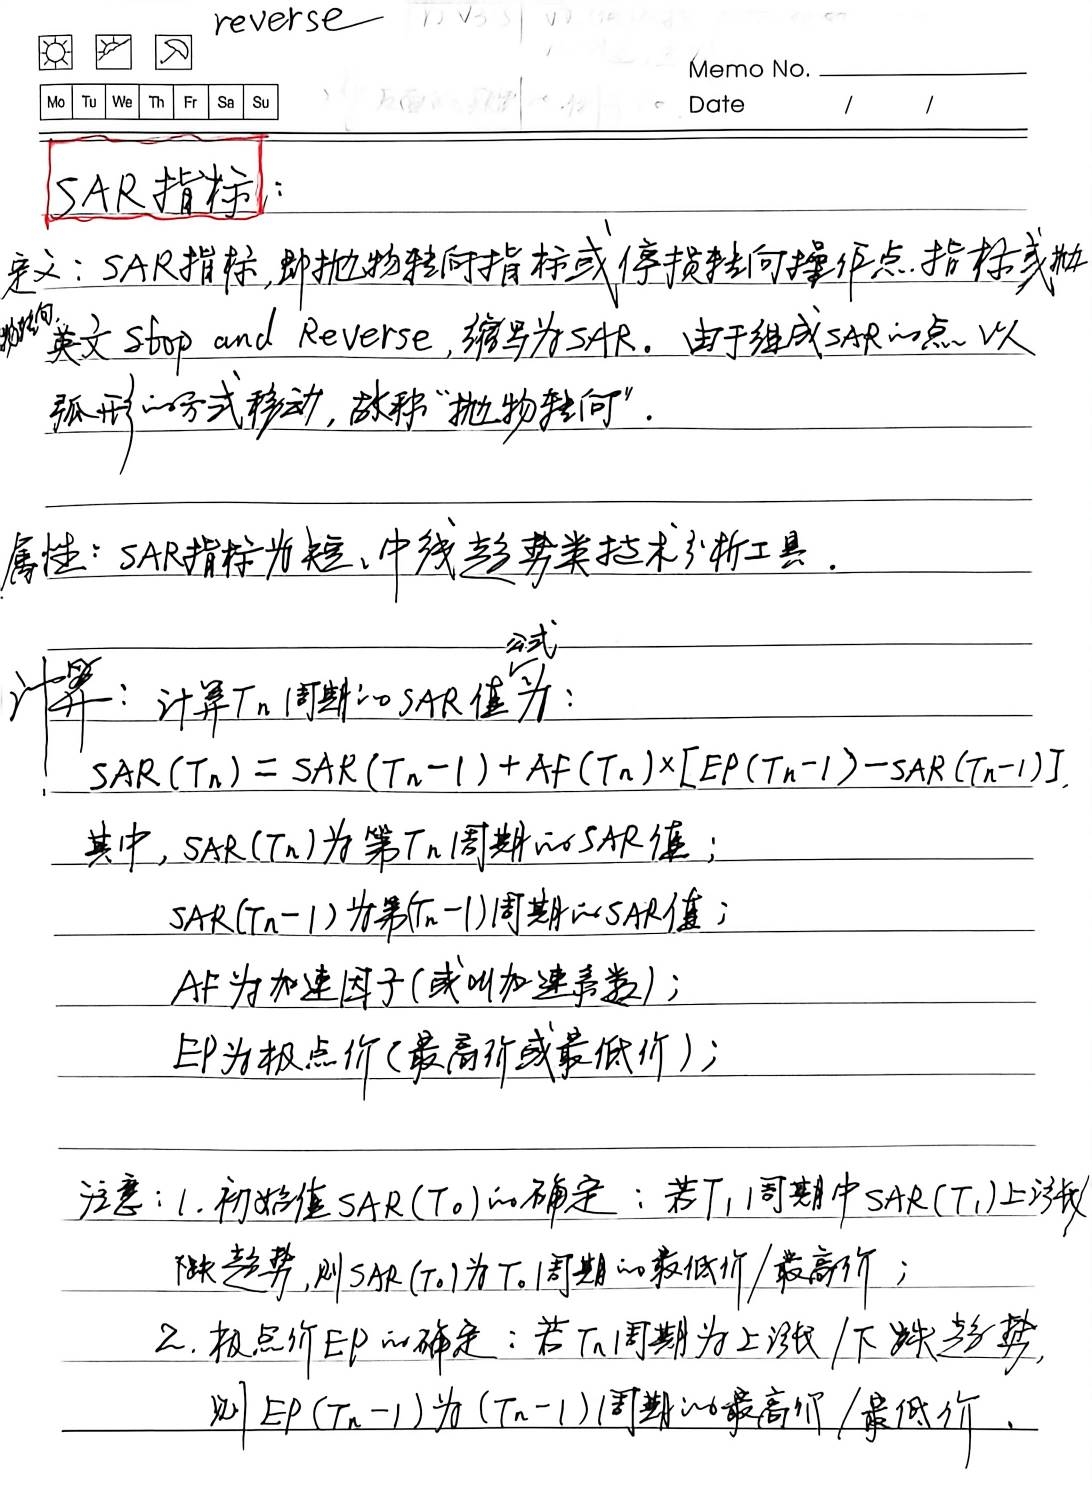 reverse
Memo No.
Mo Tu We Th Fr Sa Su
Date / /
SAR指标:
定义:SAR指标,即抛物转向指标或停损转向操作点指标或抛
物转向,英文Stop and Reverse,缩写为SAR。由于组成SAR的点以
弧形的方式移动,故称“抛物转向”.
属性:SAR指标为短、中线趋势类技术分析工具.
公式
计算:计算Tn周期的SAR值为:
SAR(Tn)=SAR(Tn-1)+AF(Tn)×[EP(Tn-1)-SAR(Tn-1)].
其中,SAR(Tn)为第Tn周期的SAR值;
SAR(Tn-1)为第(Tn-1)周期的SAR值;
AF为加速因子(或叫加速系数);
EP为极点价(最高价或最低价);
注意:1.初始值SAR(T0)的确定:若T1周期中SAR(T1)上涨/
下跌趋势,则SAR(T0)为T0周期的最低价/最高价;
2.极点价EP的确定:若Tn周期为上涨/下跌趋势,
则EP(Tn-1)为(Tn-1)周期的最高价/最低价.